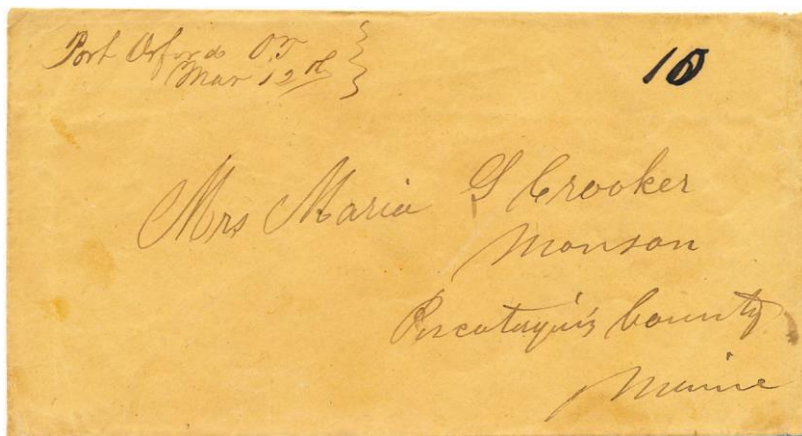 Port Orford OT
Mar 12th
10
Mrs Maria G Crooker
Monson
Piscataquis County
Maine